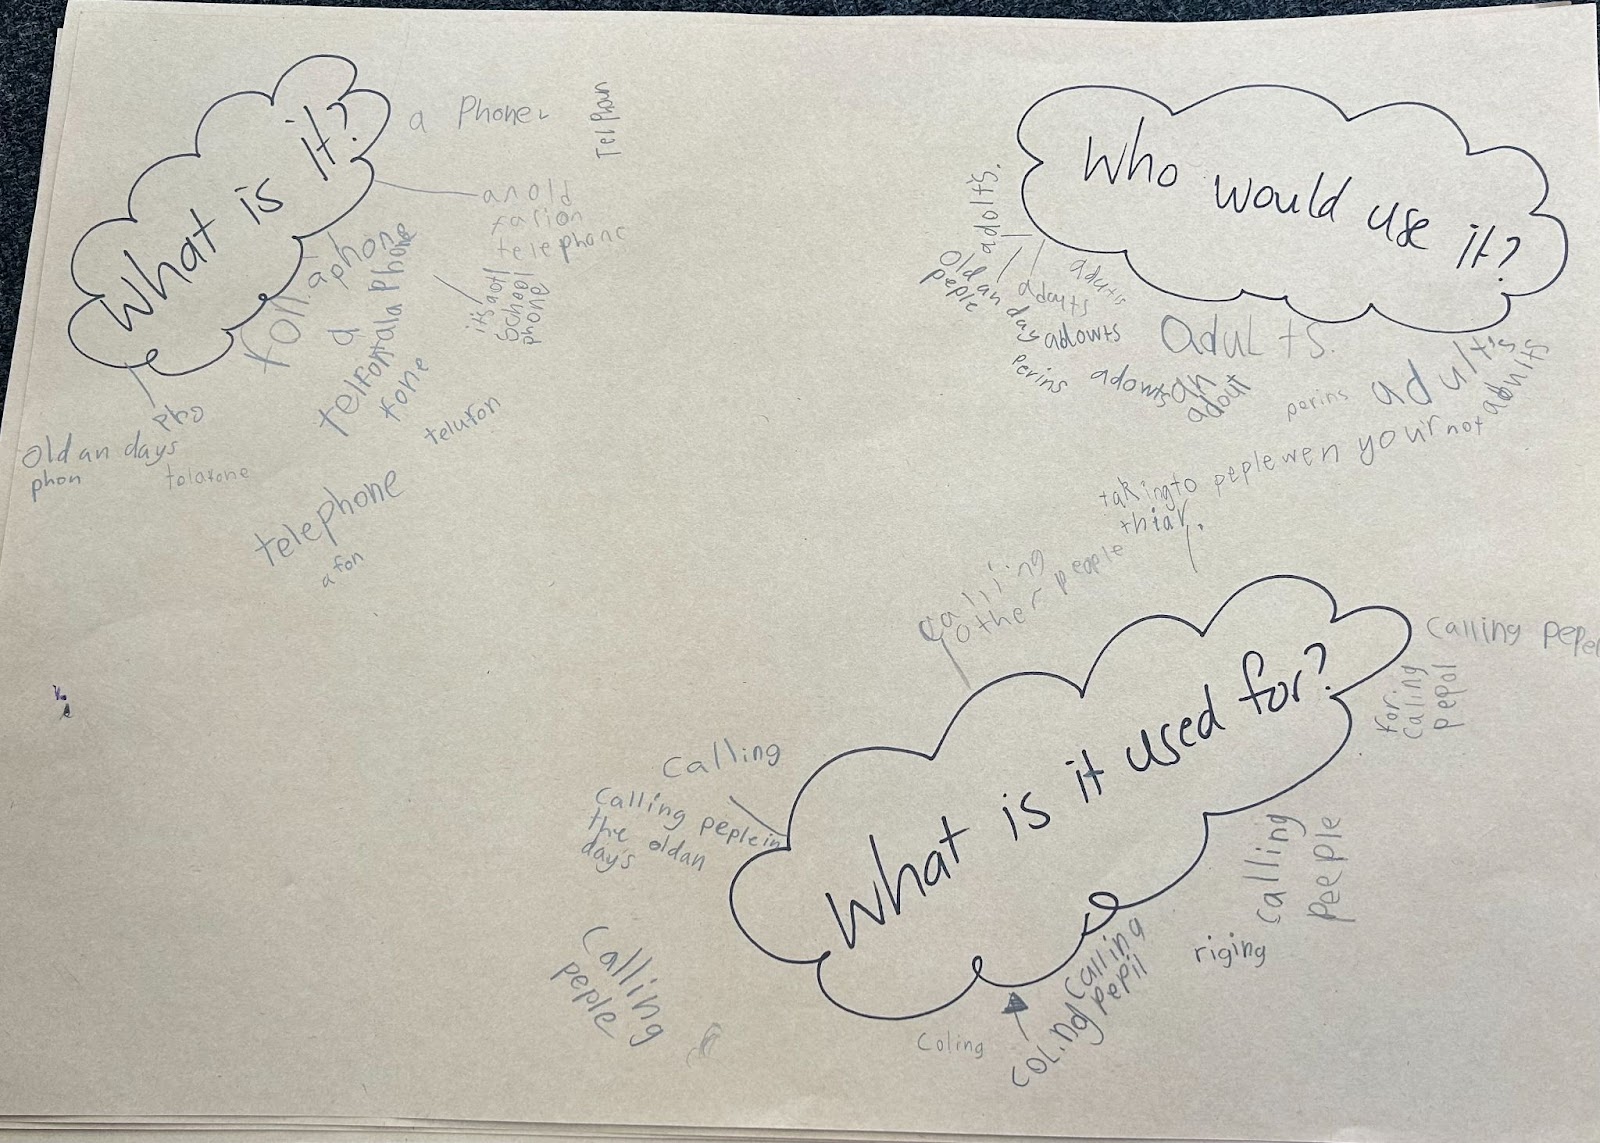 What is it?
a Phone
Tel Phon
an old
farion
telephone
it's a old
School
phone
a phon
fon.
a
telfon
a la Phone
fone
telufon
Pho
Old an days
phon
tolafone
telephone
a fon
Who would use it?
adolt's.
Old an days
peple
adults
adautis
adowts
perins
adowts
an
adout
adults.
perins
adults
adults
talking to peple wen your not
thiar.
What is it used for?
calling
other people
calling pepel
for
caling
pepol
calling
calling peple in
the oldan
day's
Calling
peple
calling
peeple
riging
calling
pepil
coling
Coling